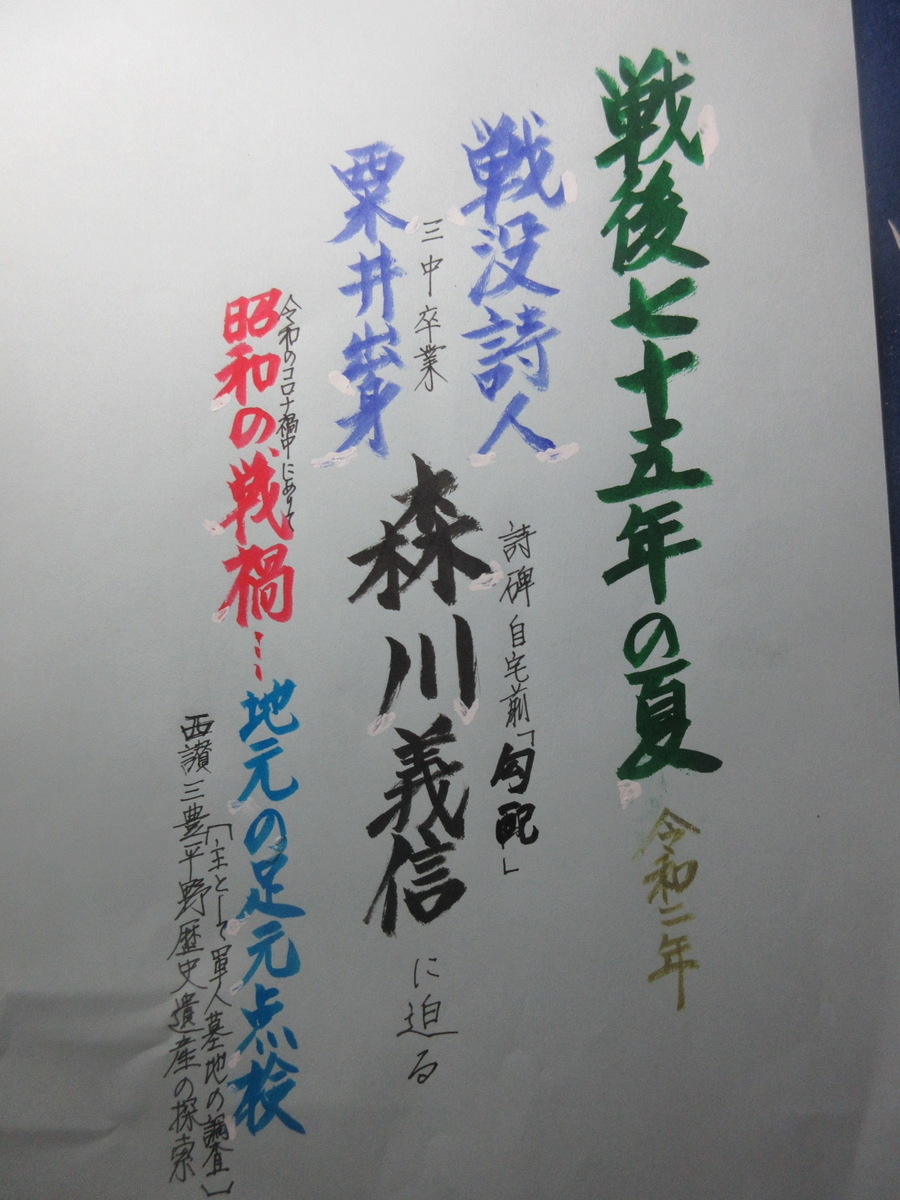 戦後七十五年の夏 令和二年
戦没詩人
詩碑 自宅前「勾配」
三中卒業
粟井出身
森川義信に迫る
令和のコロナ禍中にあって
昭和の戦禍…地元の足元点検
「主として軍人墓地の調査」
西讃三豊平野歴史遺産の探索